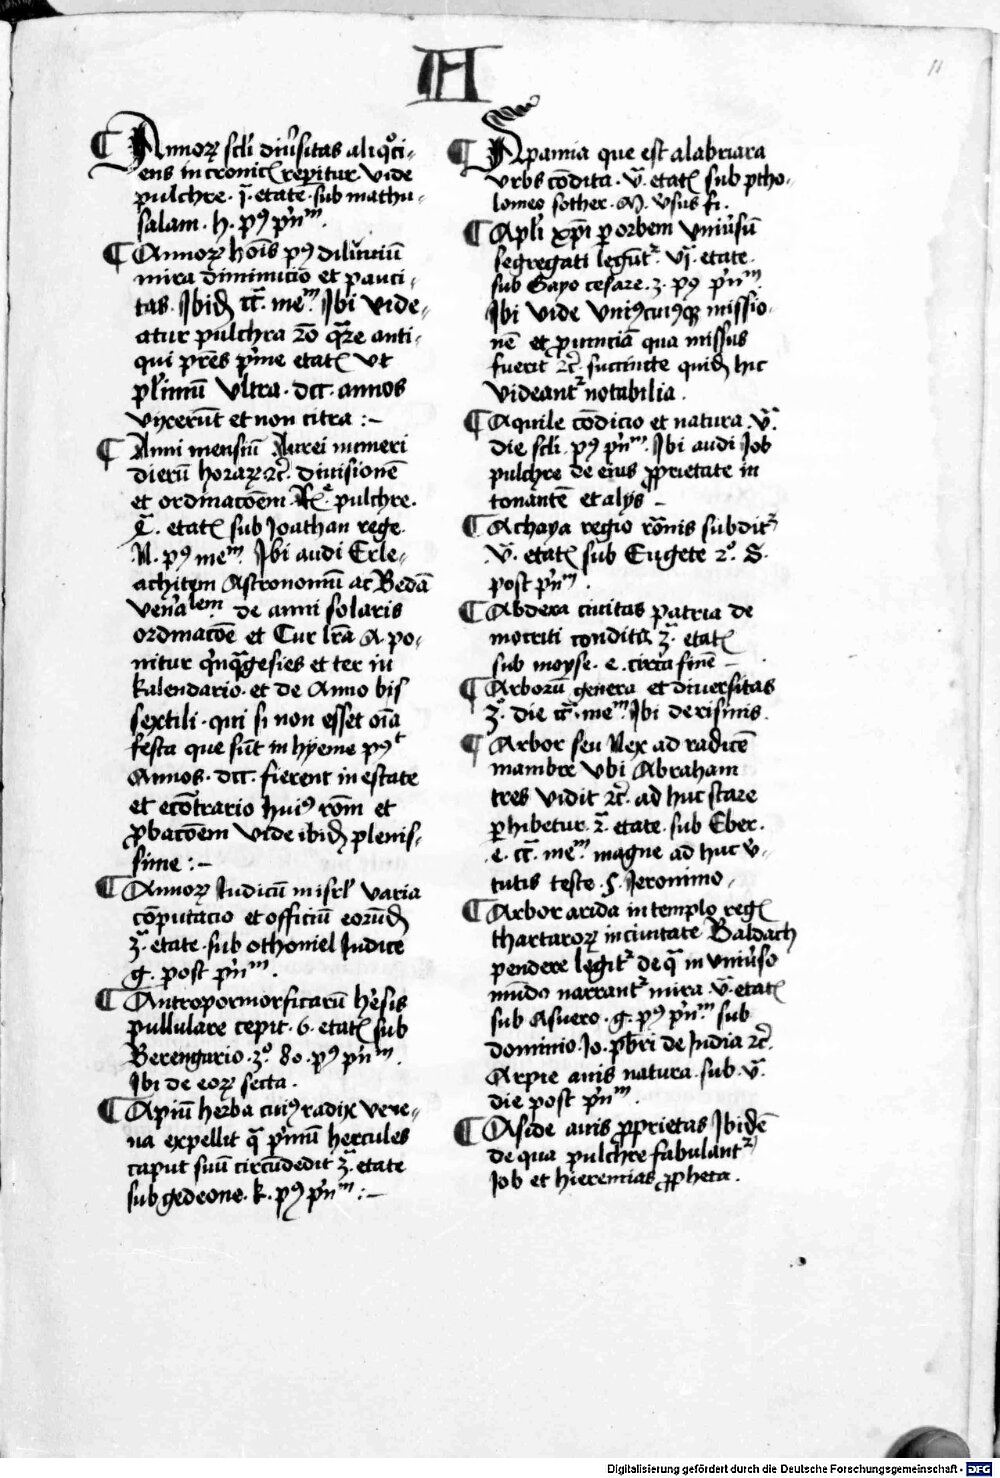 A
11
¶ Annoꝝ scli diu̓sitas aliqͦci-
ens in cronicꝭ reperitur vide
pulchre · ja · etate · sub mathu-
salam · h · pꝰ pͥnm ·
¶ Annoꝝ hoīs pꝰ diluuiū
mira diminucio et pauci-
tas · Ibid̄ cc̄ · mem · Ibi vide-
atur pulchra rō qr̄e anti-
qui pr̄es pͥme etatꝭ vt
pl̓imū vltra · dcc · annos
vixerūt et non citra :-
¶ Anni mensiū Aurei numeri
dierū horaꝝ ⁊c̄ · diuisionē
et ordinacōem · pulchre ·
etatꝭ sub Joathan rege ·
N · pꝰ mem · Ibi audi Erle-
achitem Astronomū ac Bedā
ven̓alem de anni solaris
ordinacōe et Cur lr̄a A · po-
nitur qͥnqᷓgesies et ter in
kalendario · et de Anno bis
sextili · qui si non esset oīa
festa que sūt in hyeme pꝰt
Annos · dcc · fierent in estate
et ecōtrario huiꝰ rōm et
ꝓbacōem vide ibid̄ plenis-
sime :-
¶ Annoꝝ Judicū in isrl̓ varia
cōputacio et officiū eorūd̄
3a · etate · sub othoniel Judice
g · post pͥnm ·
¶ Antropormorficarū her̓sis
pullulare cepit · 6 · etatꝭ sub
Berengario · 3o · 80 · pꝰ pͥnm ·
Ibi de eoꝝ secta ·
¶ Apiū herba cuiꝰ radix vene-
na expellit qᷓ pͥmū hercules
caput suū circūdedit 3a · etate
sub gedeone · k · pꝰ pͥnm :-
¶ Apamia que est alabriara
vrbs cōdita · va · etatꝭ sub ptho-
lomeo sother · M · v̓sus fi ·
¶ Apl̓i xp̄i ꝑ orbem vniu̓sū
segregati legūtꝰ · vja · etate ·
sub Gayo cesare · 3 · pꝰ pͥnm ·
Ibi vide vniꝰcuiꝰqꝫ missio-
nē et ꝓuinciā qua missus
fuerit ⁊c̄ · succincte quid̄ hic
videantꝰ notabilia ·
¶ Aquile cōdicio et natura · va ·
die scli · pꝰ pͥnm · Ibi audi Job
pulchre de eius ꝓprietate in
tonantē et alijs -
¶ Achaya regio rōnis subditꝰ
va · etatꝭ sub Eugete 2o · S ·
post pͥnm ·
¶ Abdera ciuitas patria de
mocriti condita 3a · etatꝭ
sub moyse · e · circa finē -
¶ Arborū genera et diuersitas
3o · die cc̄ · mem · Ibi de risinis ·
¶ Arbor seu Nex ad radicē
mambre vbi Abraham
tres vidit ⁊c̄ · ad huc stare
ꝑhibetur · 2a · etate · sub Eber ·
e · cc̄ · mem · magne ad huc v̓-
tutis teste · S · Jeronimo ·
¶ Arbor arida in templo regꝭ
thartaroꝝ in ciuitate Baldach
pendere legitꝰ de qᷓ in vniu̓so
mūdo narrantꝰ mira · va · etatꝭ
sub Asuero · g · pꝰ pͥnm sub
dominio Jo · pb̄ri de India ⁊c̄ ·
Arpie auis natura · sub · va ·
die post pͥnm ·
¶ Aside auis ꝓprietas Ibidē
de qua pulchre fabulantꝰ
Job et hieremias ꝓpheta ·
Digitalisierung gefördert durch die Deutsche Forschungsgemeinschaft - DFG